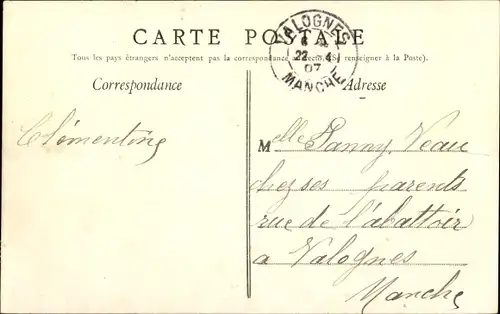 CARTE POSTALE
VALOGNES
22 - 4
07
MANCHE
Tous les pays étrangers n'acceptent pas la correspondance au recto. (Se renseigner à la Poste).
Correspondance
Adresse
Clémentine
Melle Fanny Veau
chez ses parents
rue de l'abattoir
a Valognes
Manche